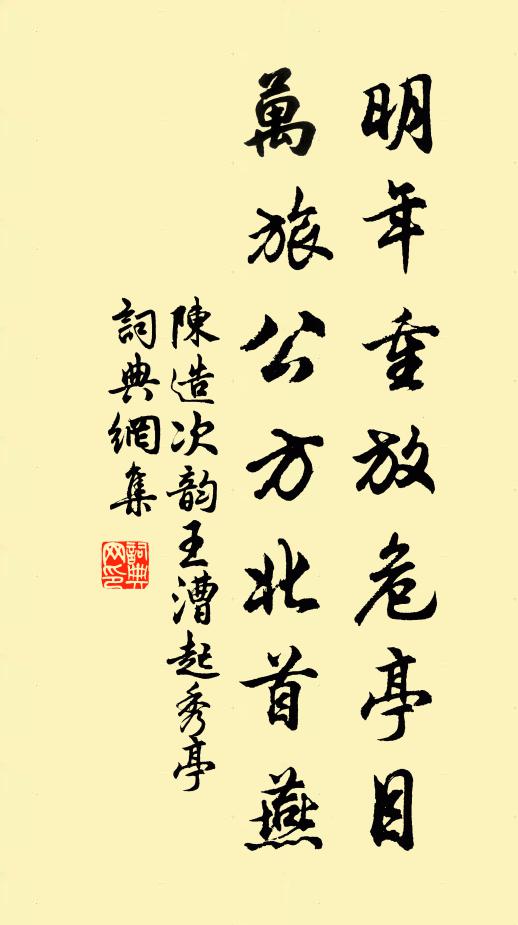 明年重放危亭目
萬旅公方北首燕
陳造次韵王漕起秀亭
詞典網集
詞典网印